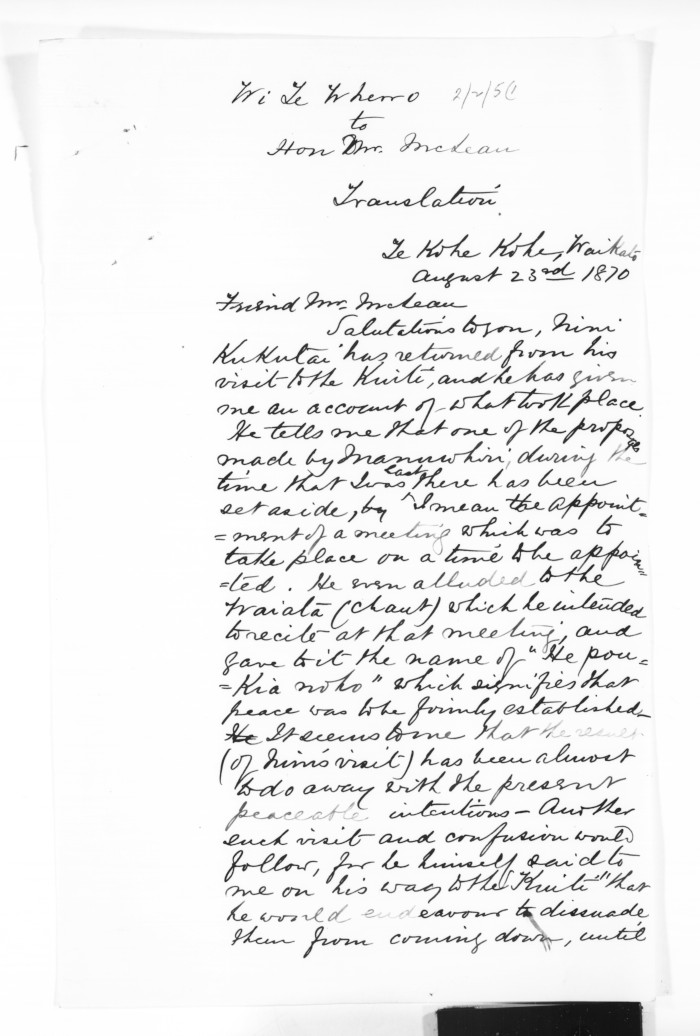 Wi Te Wherro 2/2/5
to
Hon Mr. McLean
Translation.
Te Kohe Kohe, Waikato
August 23rd 1870
Friend Mr. McLean
Salutations to you, Nini
Kukutai has returned from his
visit to the Kuiti, and he has given
me an account of what took place.
He tells me that one of the proposals
made by Manuwhiri, during the
time that I was last there has been
set aside, by I mean the appoint=
=ment of a meeting which was to
take place on a time to be appoin=
=ted. He even alluded to the
Waiata (chaut) which he intended
to recite at that meeting, and
gave to it the name of "He pou=
=Kia noho" which signifies that
peace was to be firmly established-
He It seems to me that the result
(of Nini's visit) has been almost
to do away with the present
peaceable intentions - Another
such visit and confusion would
follow, for he himself said to
me on his way to the "Kuiti" that
he would endeavour to dissuade
them from coming down, until